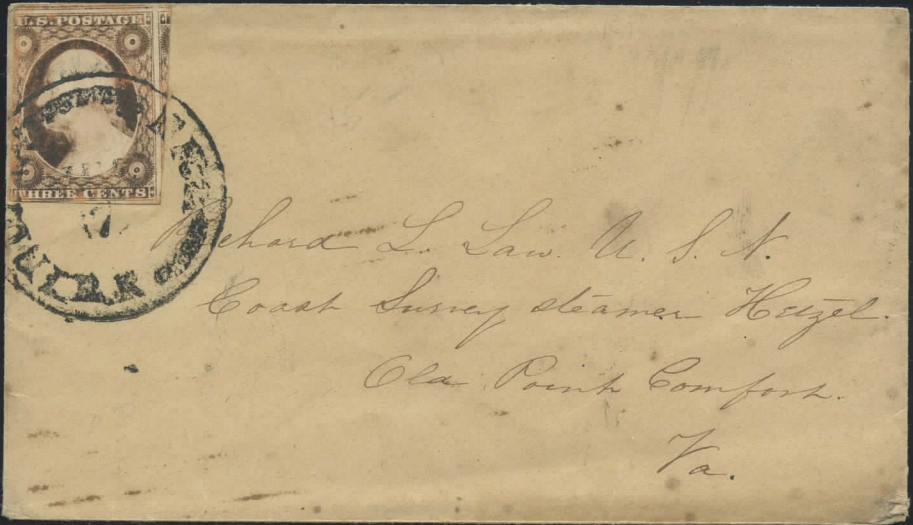 U.S. POSTAGE
THREE CENTS
Richard L. Law. U. S. N.
Coast Survey steamer Hetzel.
Old Point Comfort.
Va.